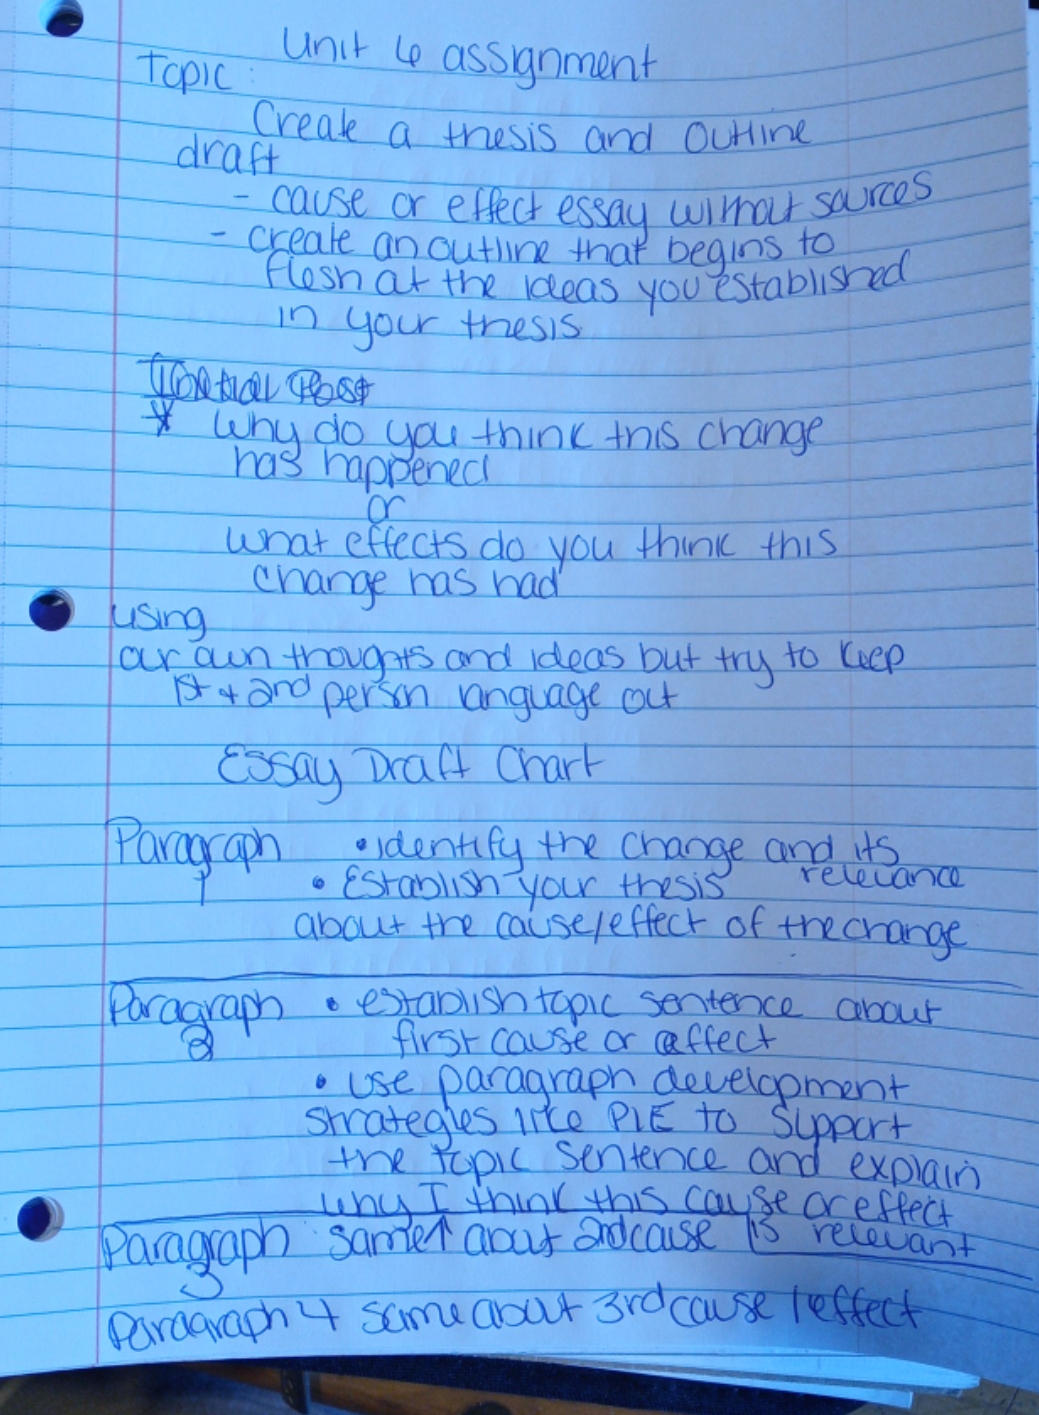 Unit 6 assignment
Topic:
Create a thesis and outline
draft
- cause or effect essay without sources
- create an outline that begins to
flesh at the ideas you established
in your thesis
* Why do you think this change
has happened
or
what effects do you think this
change has had
using
our own thoughts and ideas but try to keep
1st + 2nd person language out
Essay Draft Chart
Paragraph 1 • identify the change and its relevance
• Establish your thesis
about the cause/effect of the change
Paragraph 2 • establish topic sentence about
first cause or effect
• use paragraph development
strategies like PIE to support
the topic sentence and explain
why I think this cause or effect
is relevant
Paragraph 3 same↑ about 2nd cause
Paragraph 4 same about 3rd cause/effect